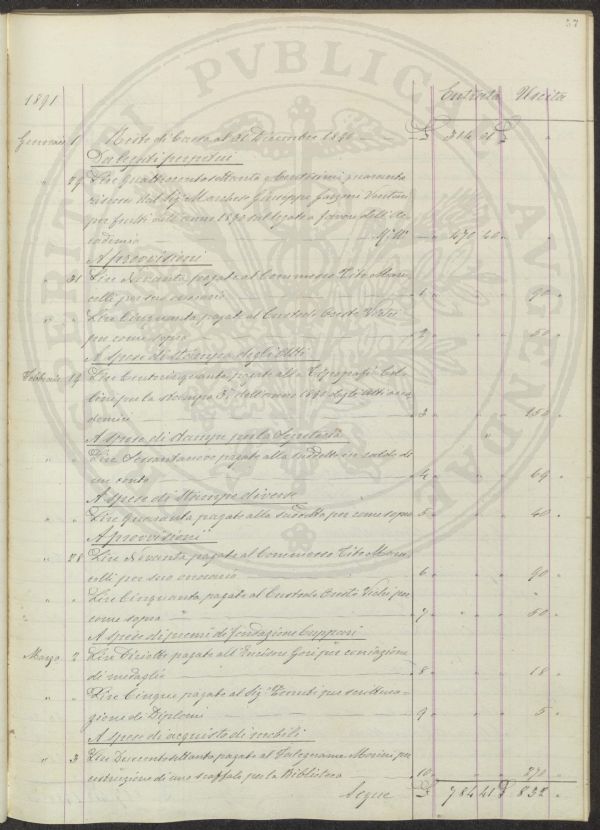 37
1891 Entrata Uscita
Gennaio 1 Resto di Cassa al 31 Dicembre 1890 £ 314 01 £ "
Da legati perpetui
" 29 Lire quattrocentosettanta e centesimi quaranta
riscosse dal Sig. Marchese Giuseppe Garzoni Venturi
per frutti dell'anno 1890 sul legato a favore dell'Ac-
cademia 470 40
A provvisioni
" 31 Lire Novanta pagate al Commesso Tito Mar-
celli per suo onorario 1 90 "
" " Lire Cinquanta pagate al Custode Oreste
per come sopra 2 50 "
A spese di Stampa degli Atti
Febbraio 19 Lire Centocinquanta pagate alla Tipografia
per la stampa dell'anno 1890 degli Atti acca
demici 3 150 "
A spese di stampe per la Segreteria
" " Lire Sessantanove pagate alla suddetta in saldo di
un conto 4 69 "
A spese di Stampe diverse
" " Lire quaranta pagate alla suddetta per come sopra 5 40 "
A provvisioni
" 28 Lire Novanta pagate al Commesso Tito Mar-
celli per suo onorario 6 90 "
" " Lire Cinquanta pagate al Custode Oreste per
come sopra 7 50 "
A spese di premi di fondazione Capponi
Marzo 2 Lire Diciotto pagate all'Incisore Gori per coniazione
di medaglie 8 18 "
" " Lire Cinque pagate al Sig. per scrittura-
zione di Diplomi 9 5 "
A spese di acquisto di mobili
" 3 Lire Duecentosettanta pagate al Falegname Morini per
costruzione di uno scaffale per la Biblioteca 10 270 "
Segue £ 784 41 £ 832 "
PROSPERITATI PUBLICAE AUGENDAE